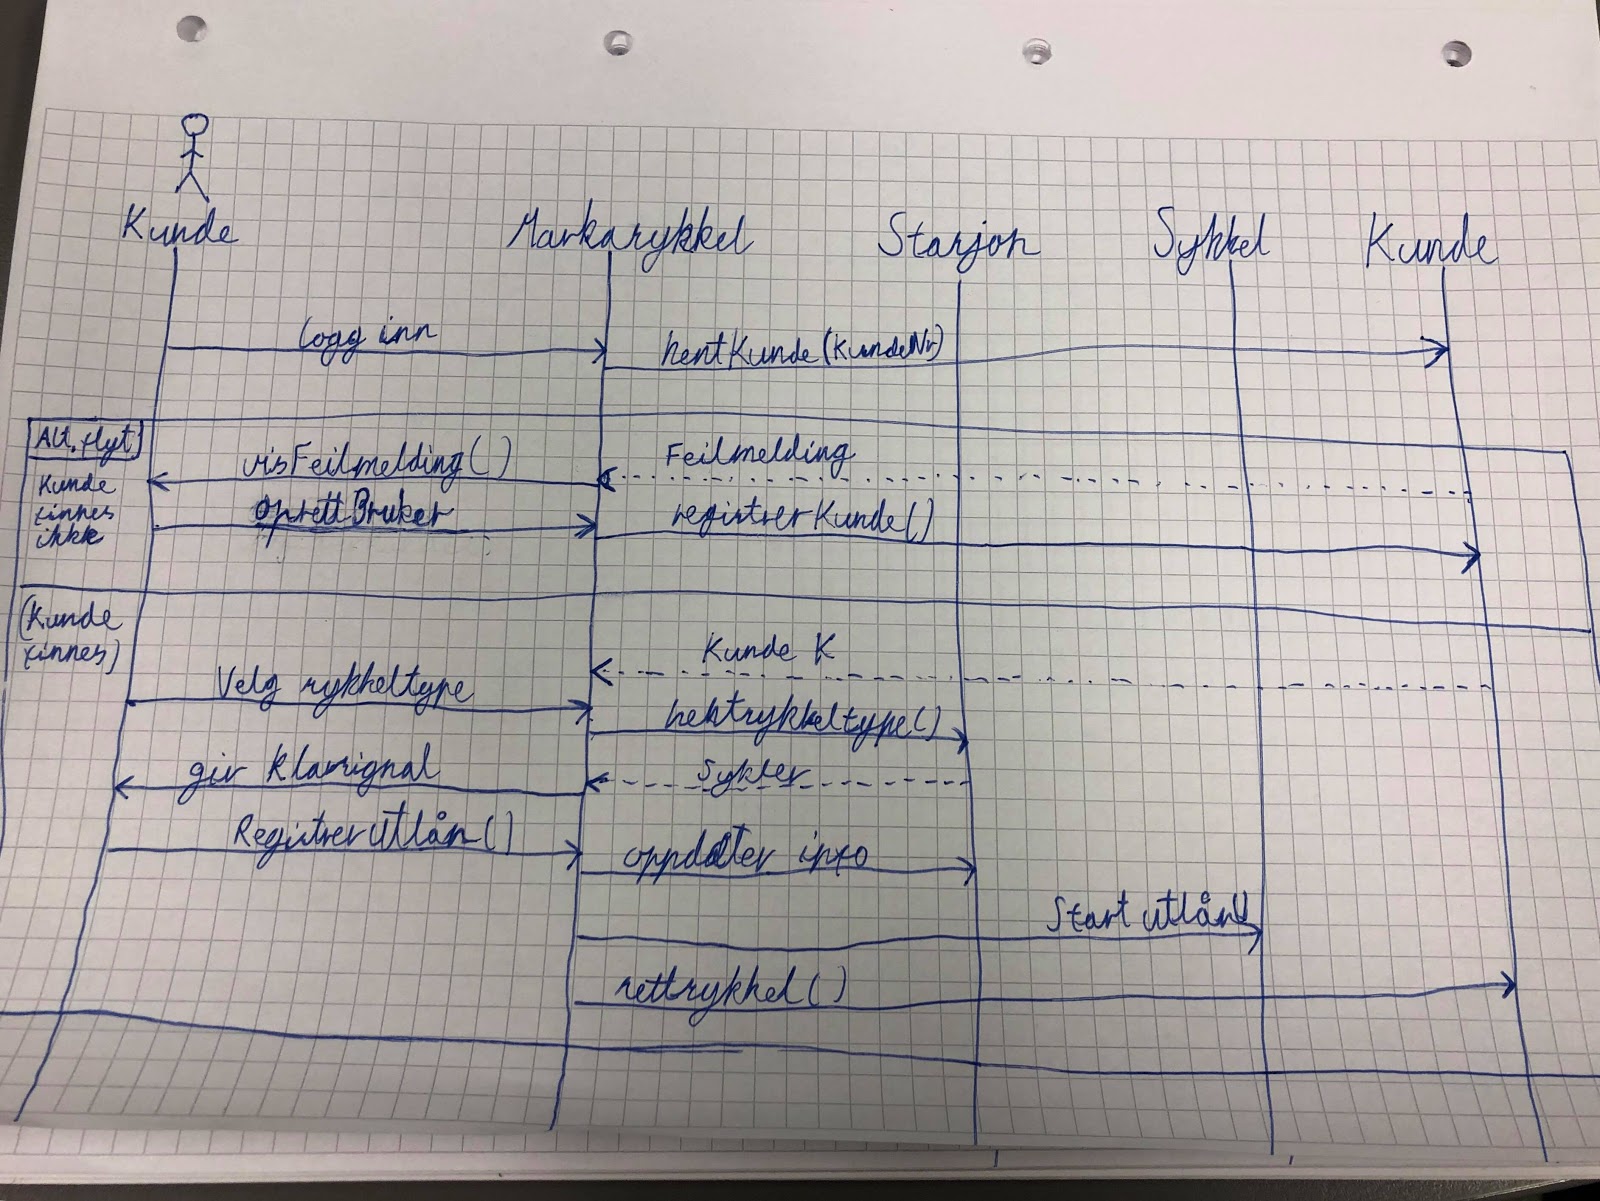 Kunde Markasykkel Stasjon Sykkel Kunde
Logg inn
hentKunde(KundeNr)
Alt.flyt
Kunde
finnes
ikke
visFeilmelding()
Feilmelding
oprettBruker
registrerKunde()
(Kunde
finnes)
Kunde K
Velg sykkeltype
hentsykkeltype()
gir klarsignal
Sykler
RegistrerUtlån()
oppdater info
Start utlån()
settsykkel()